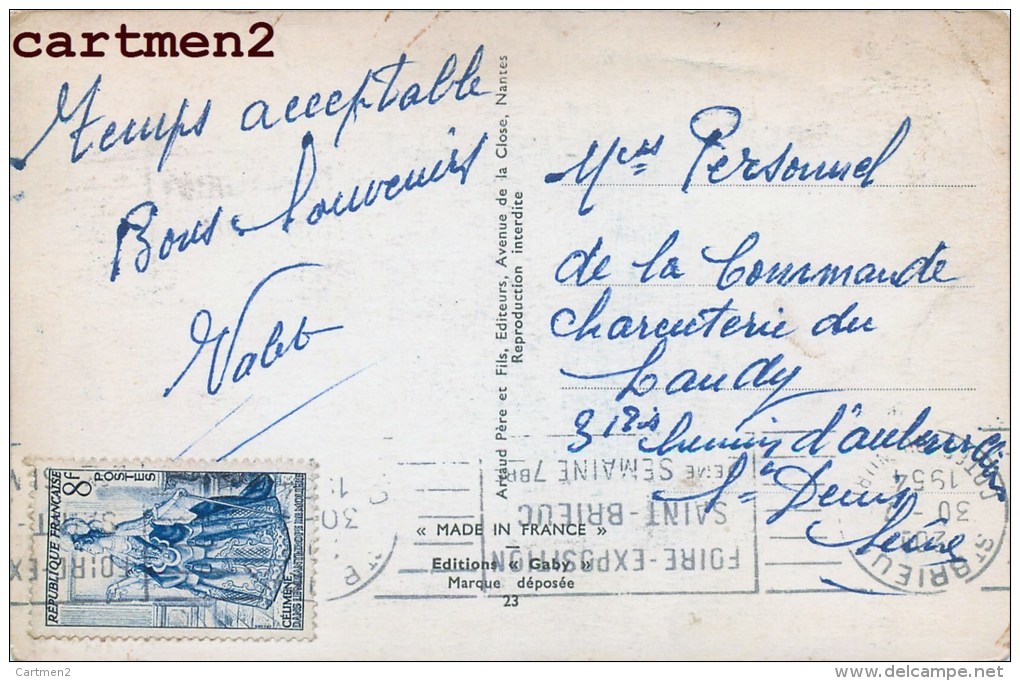 cartmen2
Temps acceptable
Bons Souvenirs
Valet
Artaud Père et Fils, Editeurs, Avenue de la Close, Nantes
Reproduction interdite
Mess Personnel
de la Commande
Charcuterie du
Landy
3 Bis Chemin d'Aubervi
St Denis
Seine
« MADE IN FRANCE »
Editions « Gaby »
Marque déposée
23
8F
POSTES
REPUBLIQUE FRANÇAISE
CÉLIMÈNE
FOIRE-EXPOSITION
SAINT-BRIEUC
SEMAINE 7BRE
ST BRIEUC
30
1954
COTES DU NORD
Cartmen2
www.delcampe.net